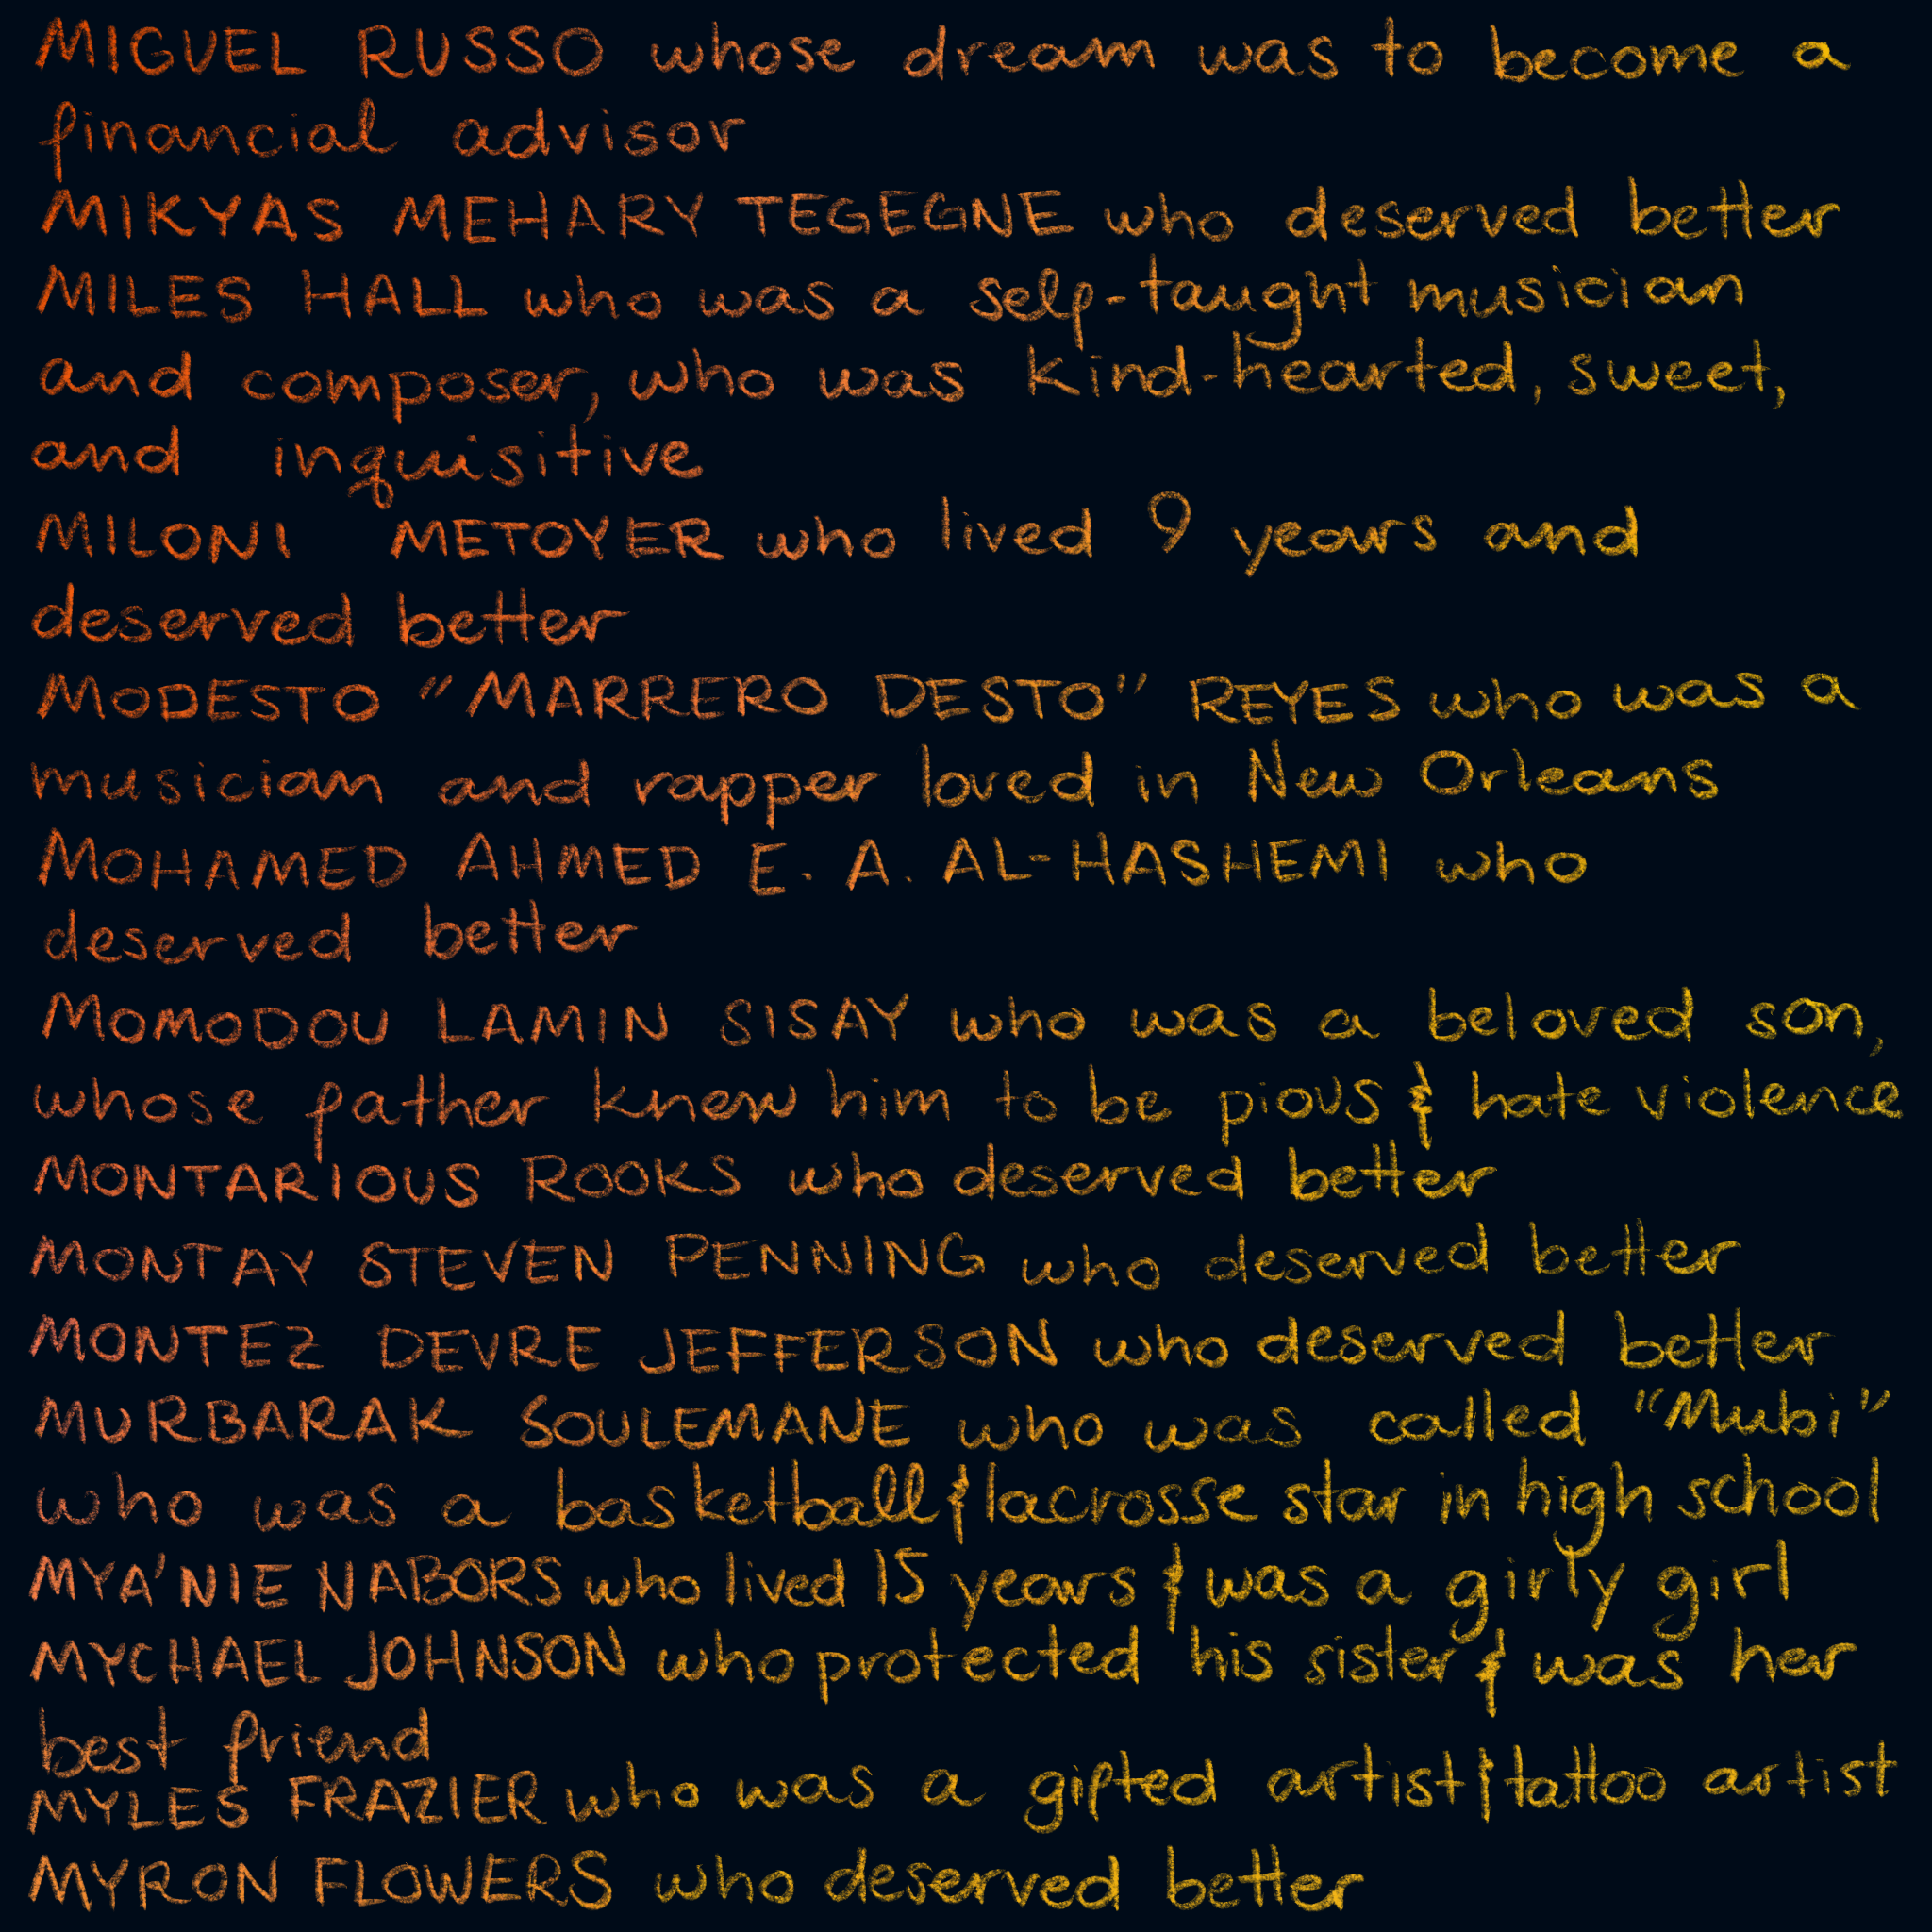 MIGUEL RUSSO whose dream was to become a
financial advisor
MIKYAS MEHARY TEGEGNE who deserved better
MILES HALL who was a self-taught musician
and composer, who was kind-hearted, sweet,
and inquisitive
MILONI METOYER who lived 9 years and
deserved better
MODESTO "MARRERO DESTO" REYES who was a
musician and rapper loved in New Orleans
MOHAMED AHMED E. A. AL-HASHEMI who
deserved better
MOMODOU LAMIN SISAY who was a beloved son,
whose father knew him to be pious & hate violence
MONTARIOUS ROOKS who deserved better
MONTAY STEVEN PENNING who deserved better
MONTEZ DEVRE JEFFERSON who deserved better
MURBARAK SOULEMANE who was called "Mubi"
who was a basketball & lacrosse star in high school
MYA'NIE NABORS who lived 15 years & was a girly girl
MYCHAEL JOHNSON who protected his sister & was her
best friend
MYLES FRAZIER who was a gifted artist & tattoo artist
MYRON FLOWERS who deserved better